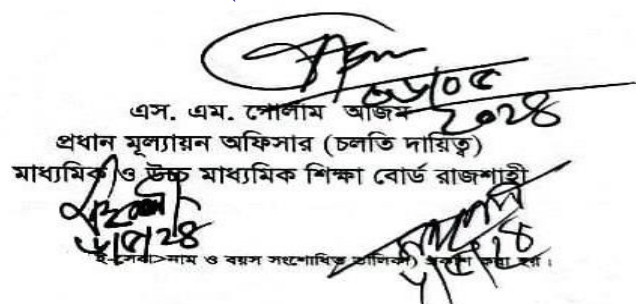 ০৮/০৫
২০২৪
এস. এম. গোলাম আজম
প্রধান মূল্যায়ন অফিসার (চলতি দায়িত্ব)
মাধ্যমিক ও উচ্চ মাধ্যমিক শিক্ষা বোর্ড রাজশাহী
৮/৫/২৪
ই-সেবা>নাম ও বয়স সংশোধিত তালিকা) প্রকাশ করা হয়।
৮/৫/২৪